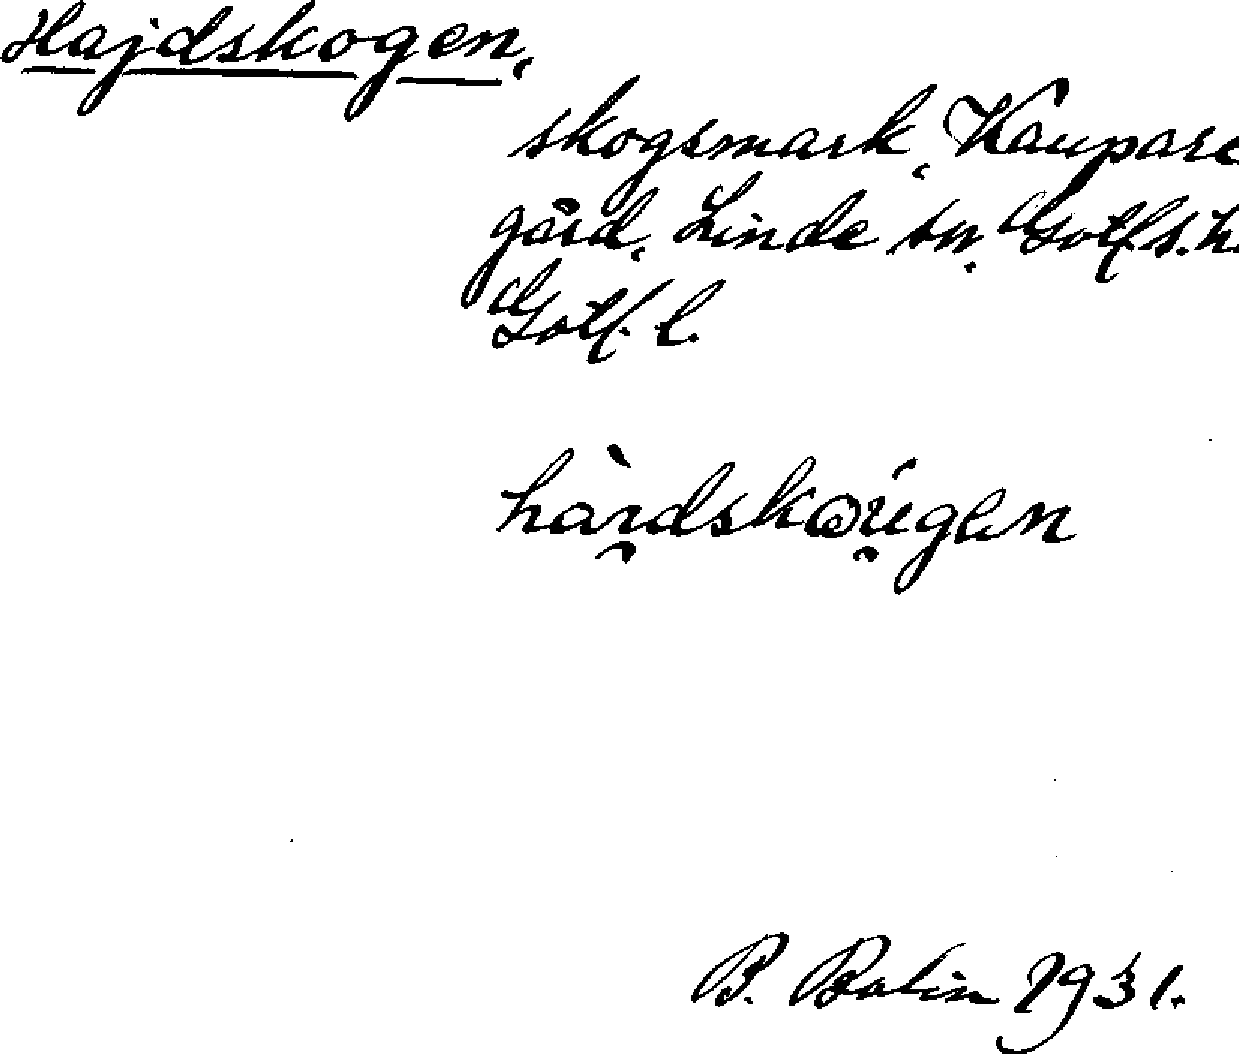 Hajdskogen,
skogsmark, Kaupare
gård, Linde sn. Gotl.s.h.
Gotl. l.
B. Bolin 1931.